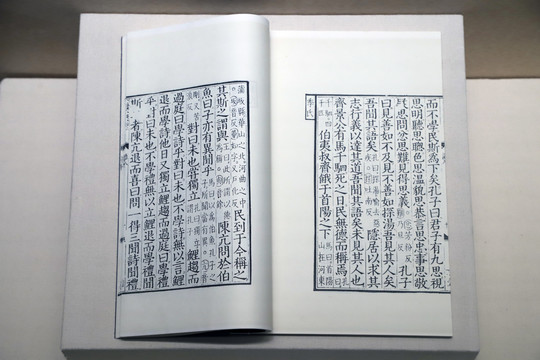 而不學民斯爲下矣孔子曰君子有九思視
思明聽思聰色思溫貌思恭言思忠事思敬
疑思問忿思難見得思義 孔子
曰見善如不及見不善如探湯吾見其人矣
吾聞其語矣 隱居以求其
志行義以達其道吾聞其語矣未見其人也
齊景公有馬千駟死之日民無德而稱焉
伯夷叔齊餓于首陽之下 馬曰首陽山在河東
季氏
蒲坂縣華山之北河曲之中 民到于今稱之
其斯之謂與 陳亢問於伯
魚曰子亦有異聞乎 馬曰以爲伯魚孔子之子所聞當有異
對曰未也嘗獨立 鯉趨而
過庭曰學詩乎對曰未也不學詩無以言鯉
退而學詩他日又獨立鯉趨而過庭曰學禮
乎對曰未也不學禮無以立鯉退而學禮聞
斯 者陳亢退而喜曰問一得三聞詩聞禮